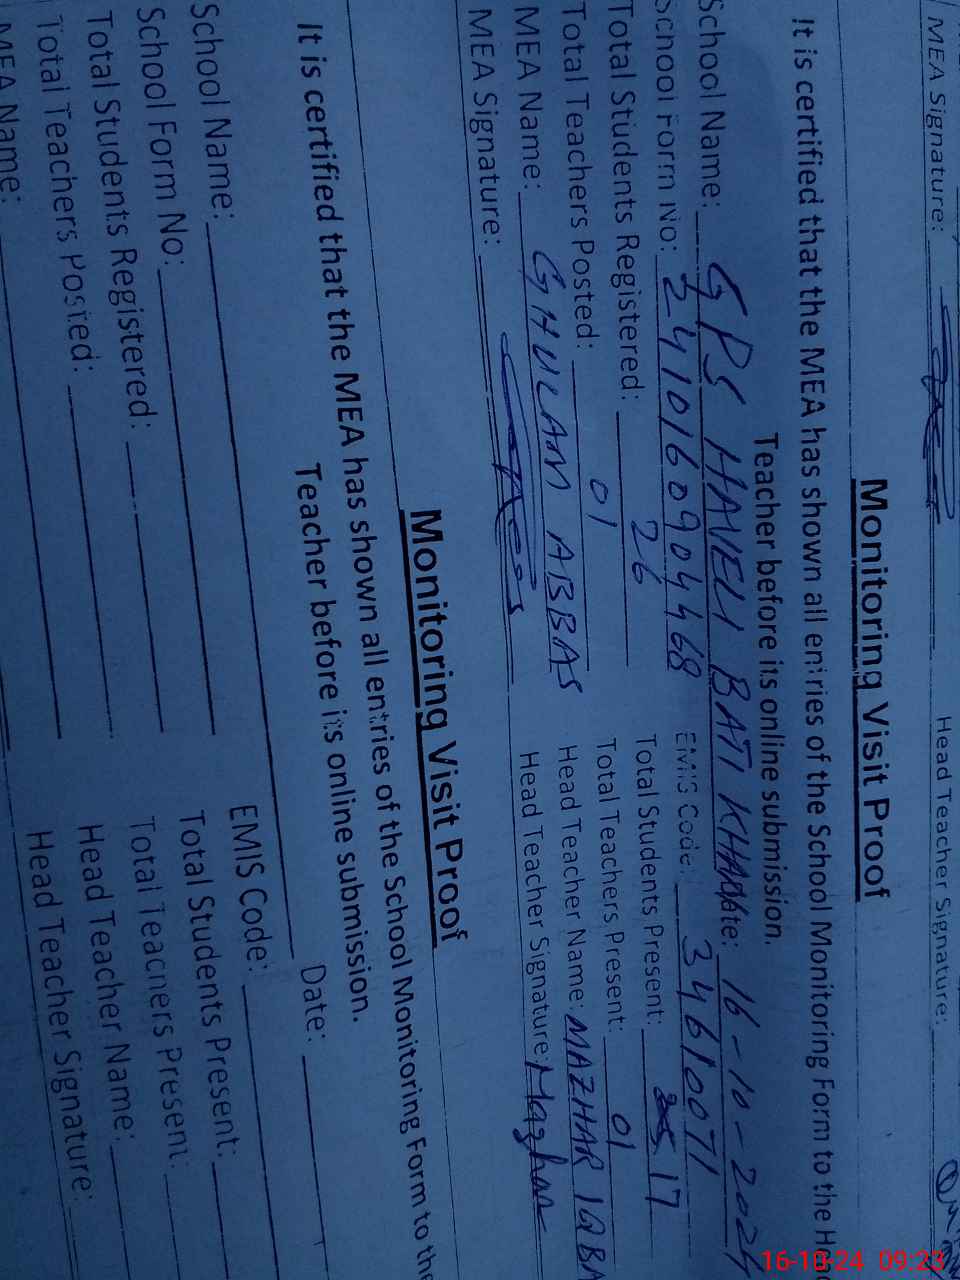 MEA Signature: Head Teacher Signature:
Monitoring Visit Proof
It is certified that the MEA has shown all entries of the School Monitoring Form to the
Teacher before its online submission.
School Name: GPS HAVELI BATI KHAN Date: 16-10-2024
School Form No: 2410160904468 EMIS Code: 34610071
Total Students Registered: 26 Total Students Present: 17
Total Teachers Posted: 01 Total Teachers Present: 01
MEA Name: GHULAM ABBAS Head Teacher Name: MAZHAR IQBA
MEA Signature: Head Teacher Signature: Mazhar
Monitoring Visit Proof
It is certified that the MEA has shown all entries of the School Monitoring Form to the
Teacher before its online submission.
School Name: Date:
School Form No: EMIS Code:
Total Students Registered: Total Students Present:
Total Teachers Posted: Total Teachers Present:
MEA Name: Head Teacher Name:
Head Teacher Signature:
16-10-24 09:23